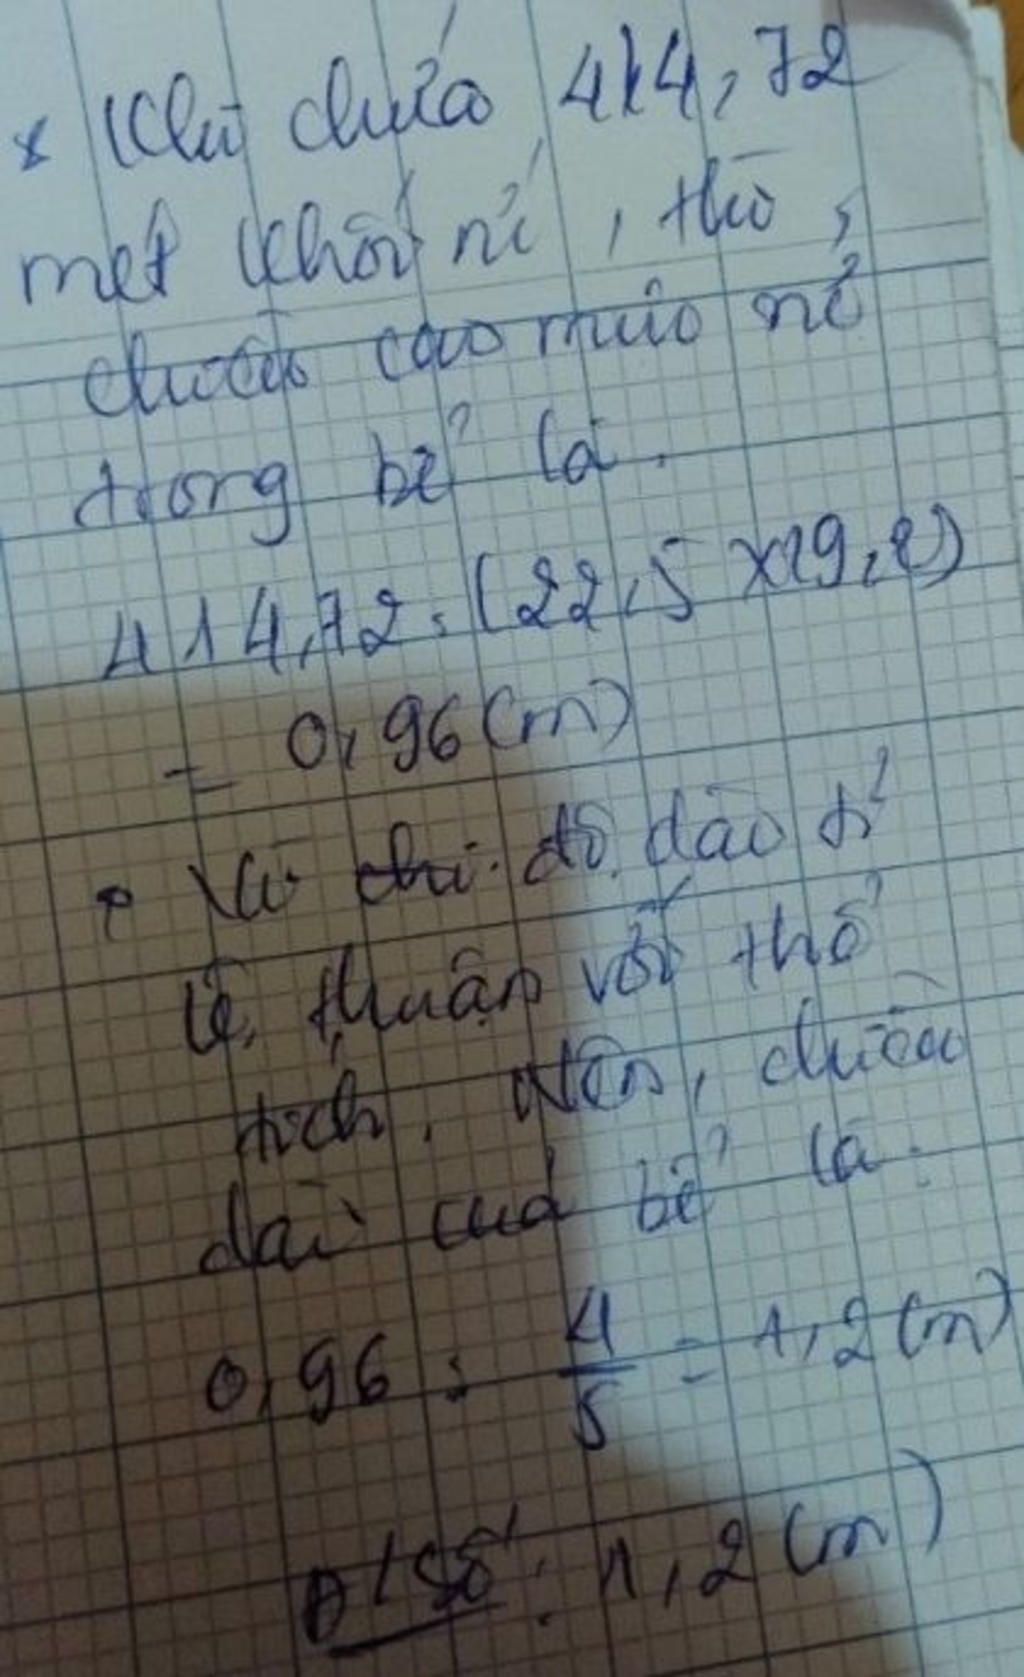 * Khi chứa 414,72
mét khối nc, thì,
chiều cao mức nc
trong bể là.
414,72 : (22,5 x 19,2)
= 0,96 (m)
• Vì độ dài tỉ
lệ, thuận với thể
tích. Nên, chiều
dài của bể là:
0,96 : 4/5 = 1,2 (m)
Đ/Số: 1,2 (m)